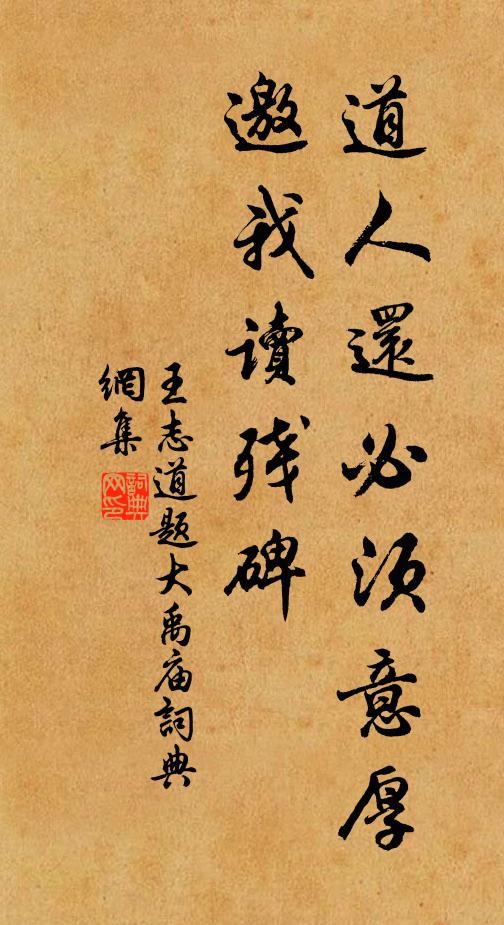 道人還必須意厚
邀我讀残碑
王志道題大禹庙詞典
網集
詞典
网印